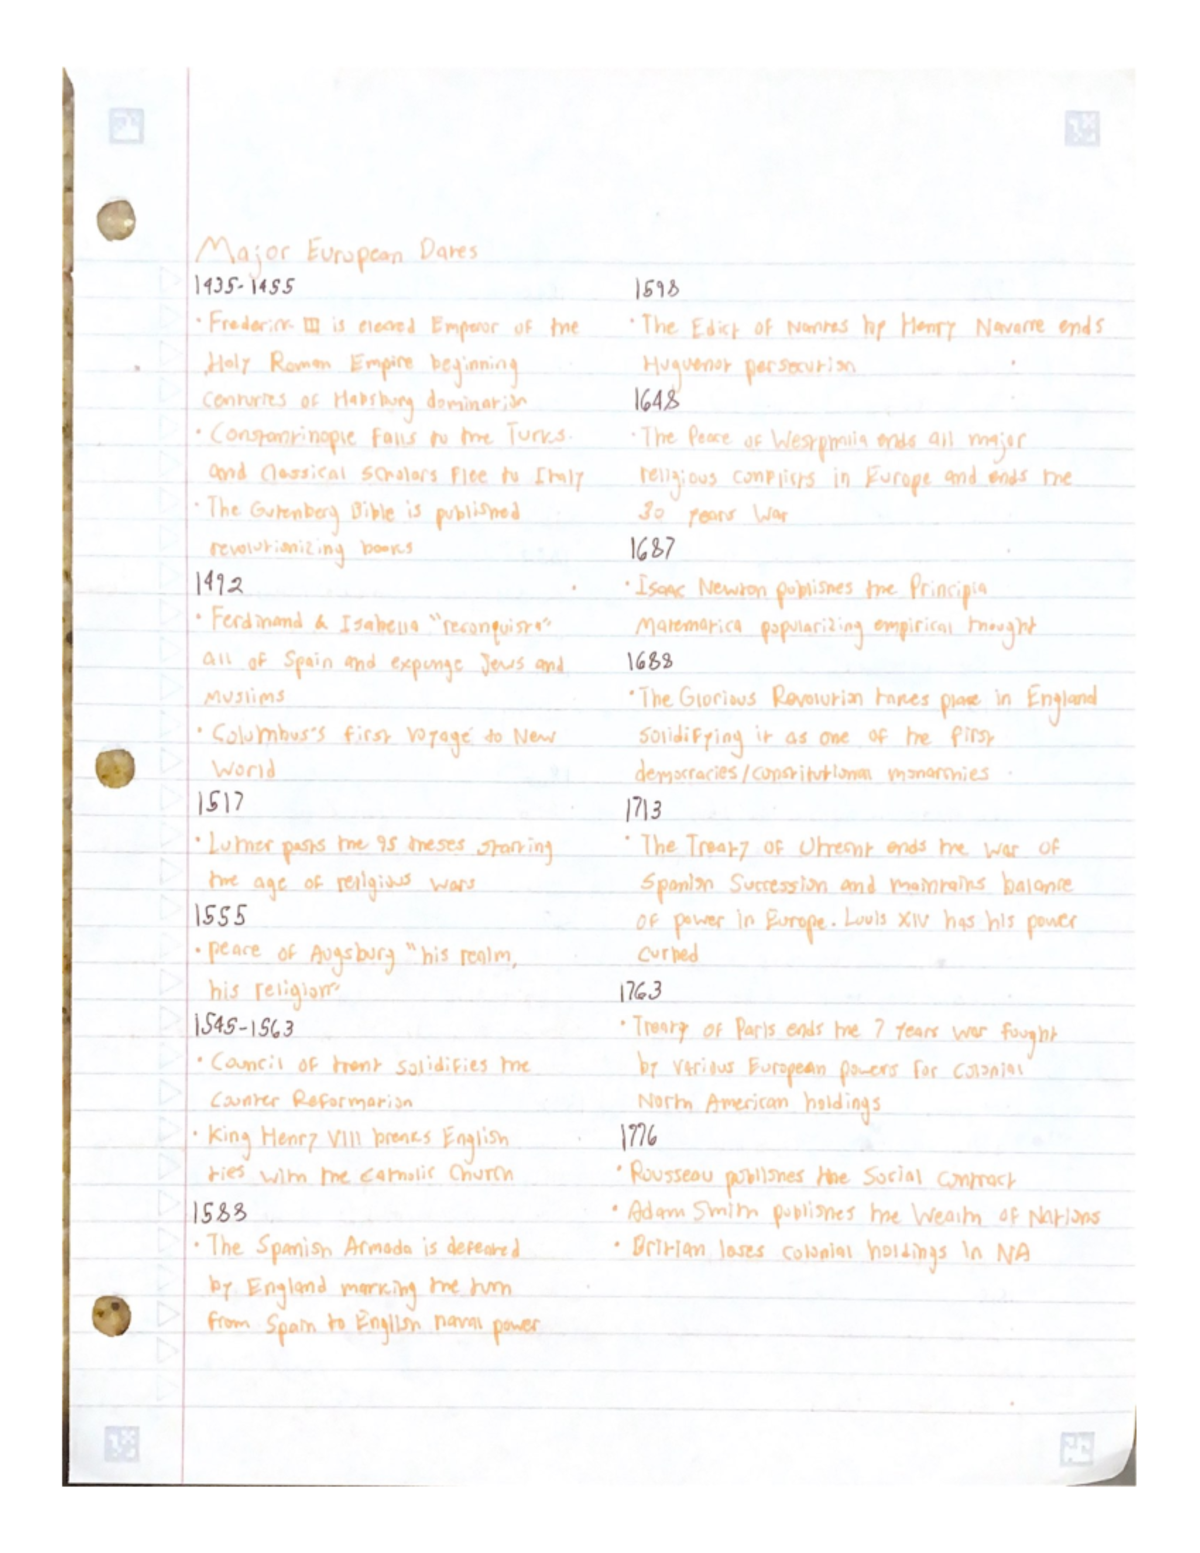 Major European Dates
1435-1455
· Frederick III is elected Emperor of the
Holy Roman Empire beginning
centuries of Habsburg domination
· Constantinople Falls to the Turks
and Classical Scholars Flee to Italy
· The Gutenberg Bible is published
revolutionizing books
1492
· Ferdinand & Isabella "reconquista"
all of Spain and expunge Jews and
Muslims
· Columbus's first voyage to New
World
1517
· Luther posts the 95 theses starting
the age of religious wars
1555
· peace of Augsburg "his realm,
his religion"
1545-1563
· Council of trent solidifies the
Counter Reformation
· King Henry VIII breaks English
ties with the Catholic Church
1588
· The Spanish Armada is defeated
by England marking the turn
from Spain to English naval power
1598
· The Edict of Nantes by Henry Navarre ends
Huguenot persecution
1648
· The Peace of Westphalia ends all major
religious conflicts in Europe and ends the
30 years War
1687
· Isaac Newton publishes the Principia
Matematica popularizing empirical thought
1688
· The Glorious Revolution takes place in England
solidifying it as one of the first
democracies/constitutional monarchies
1713
· The Treaty of Utrecht ends the war of
Spanish Succession and maintains balance
of power in Europe. Louis XIV has his power
curbed
1763
· Treaty of Paris ends the 7 years war fought
by various European powers for colonial
North American holdings
1776
· Rousseau publishes the Social contract
· Adam Smith publishes the Wealth of Nations
· Britian loses colonial holdings in NA